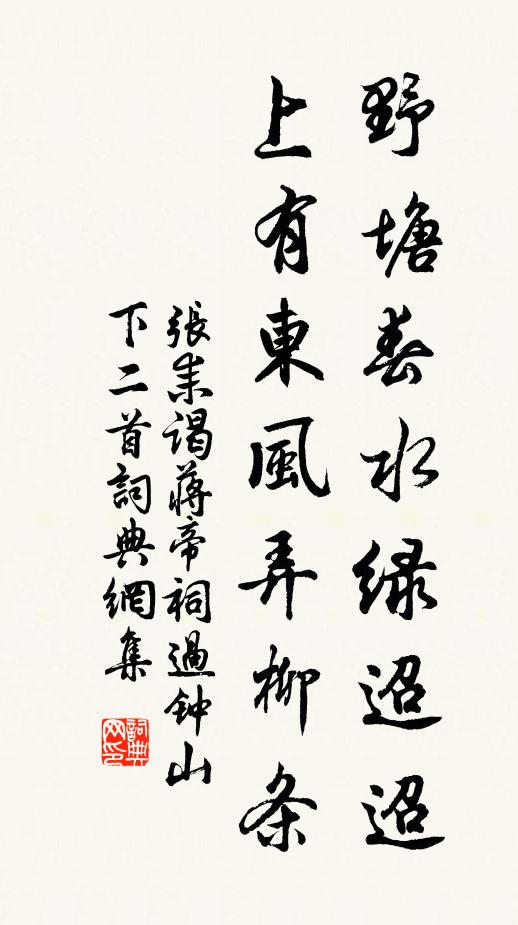 野塘春水绿迢迢
上有東風弄柳条
張耒謁蔣帝祠過钟山
下二首詞典網集
詞典网印